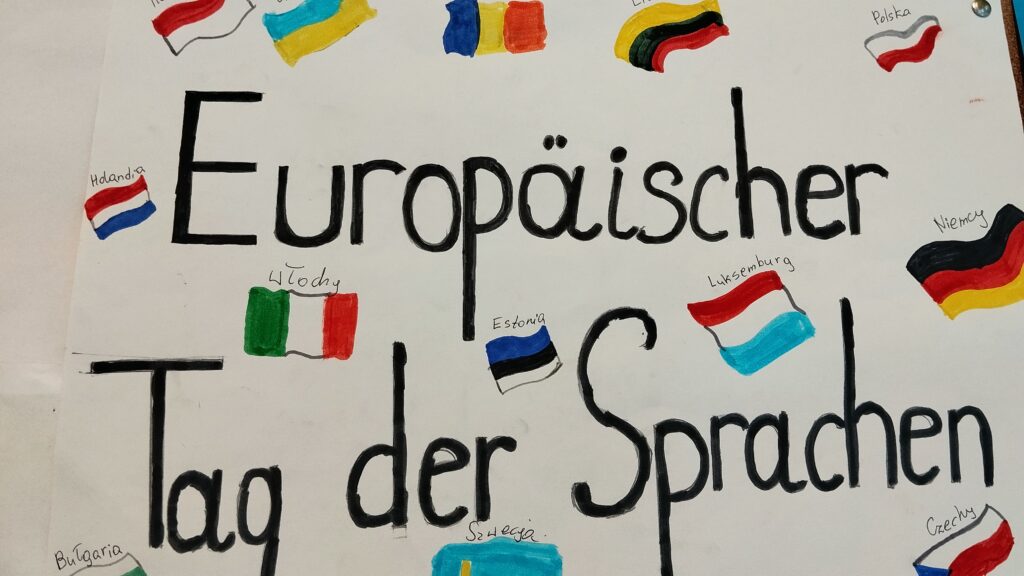 Polska
Holandia
Europäischer
Niemcy
Włochy
Luksemburg
Estonia
Tag der Sprachen
Szwecja
Czechy
Bułgaria